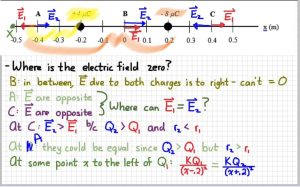 E₁ A E₂ +4 μC B E₁ E₂ -8 μC E₂ C E₁
X -0.5 -0.4 -0.3 -0.2 -0.1 0 0.1 0.2 0.3 0.4 0.5 x (m)
- Where is the electric field zero?
B: in between, E due to both charges is to right - can't = 0
A: E are opposite
C: E are opposite } Where can E₁ = E₂?
At C: E₂ > E₁ b/c Q₂ > Q₁ and r₂ < r₁
At A they could be equal since Q₂ > Q₁ but r₂ > r₁
At some point x to the left of Q₁: KQ₁/(x-.2)² = KQ₂/(x+.2)²